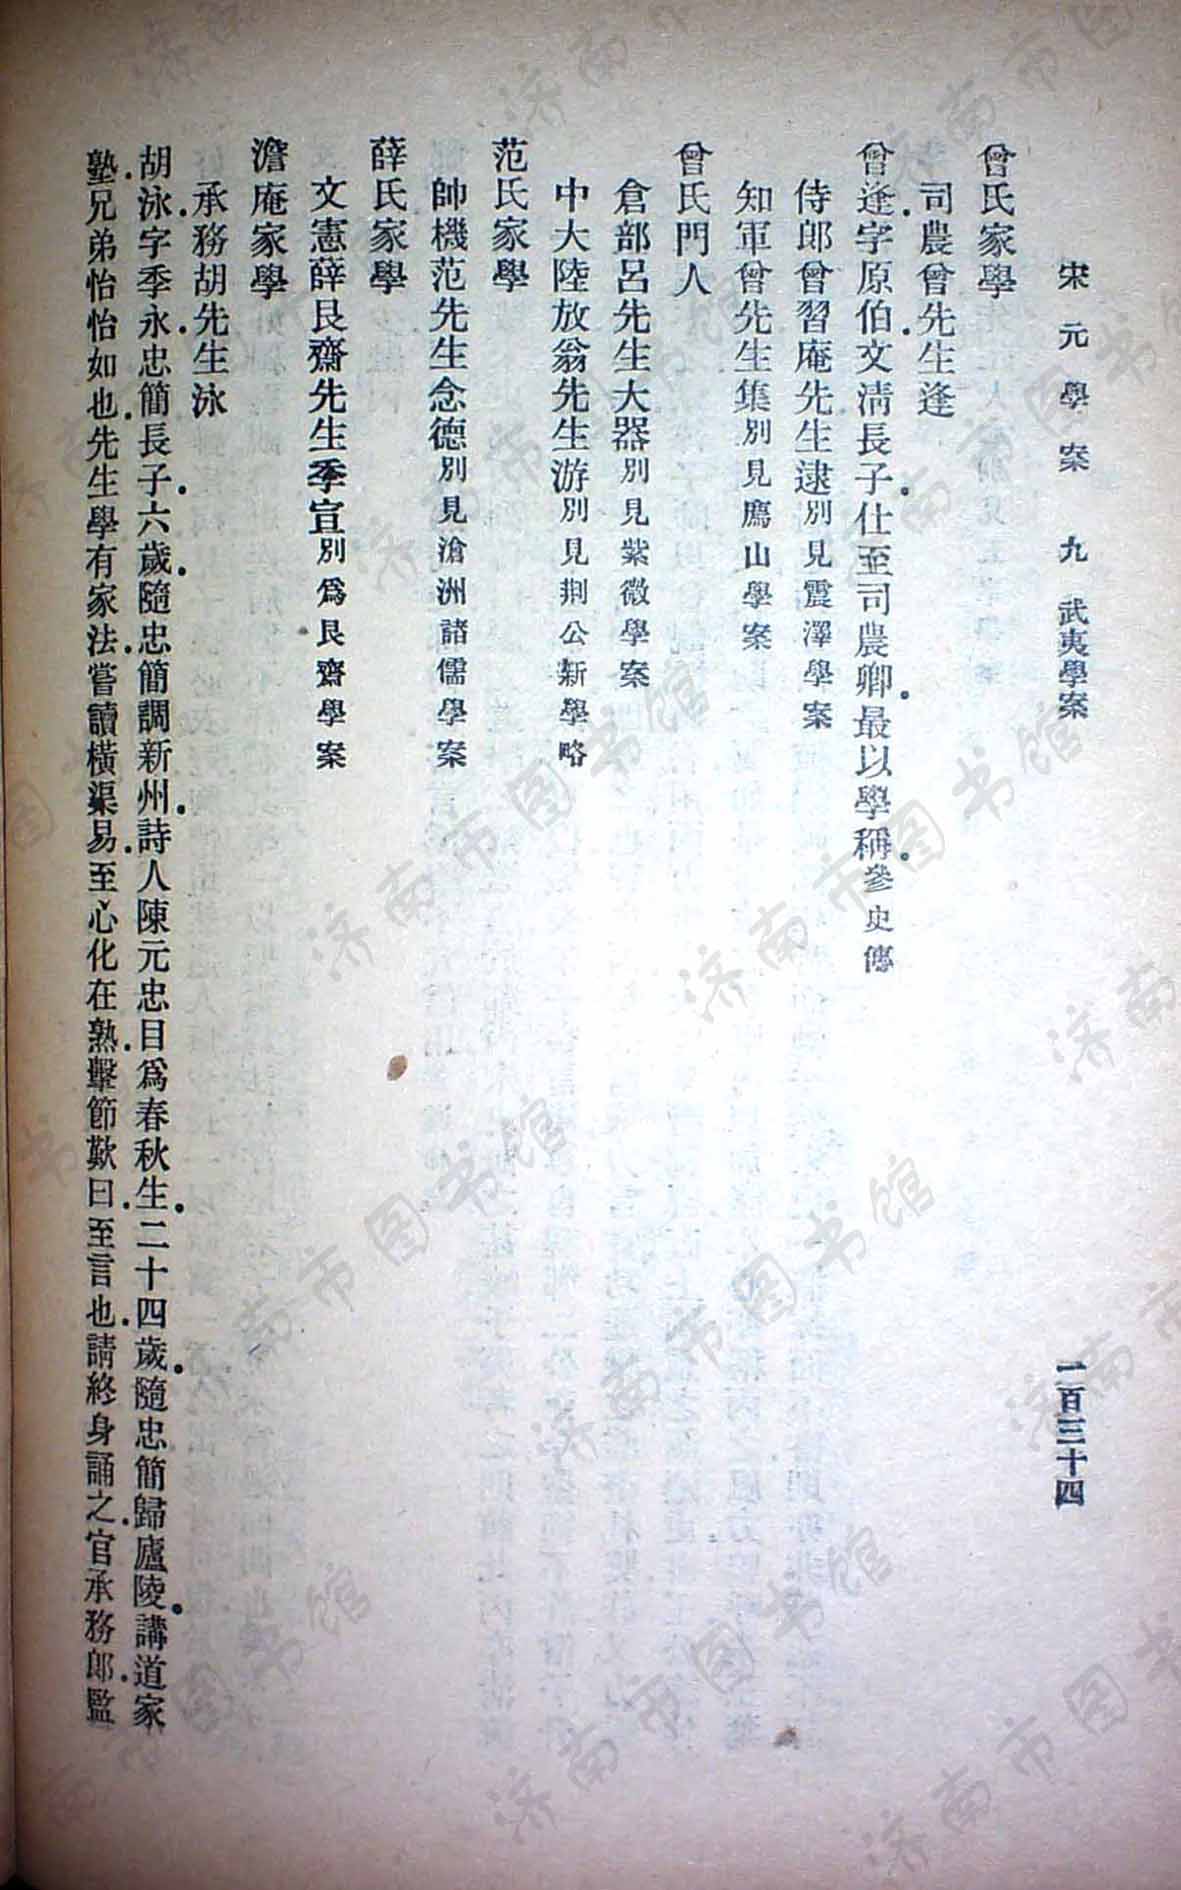 宋元學案 九 武夷學案 一百三十四
曾氏家學
司農曾先生逢
曾逢字原伯文清長子仕至司農卿最以學稱參史傳
侍郎曾習庵先生逮別見震澤學案
知軍曾先生集別見廌山學案
曾氏門人
倉部呂先生大器別見紫微學案
中大陸放翁先生游別見荆公新學略
范氏家學
帥機范先生念德別見滄洲諸儒學案
薛氏家學
文憲薛艮齋先生季宣別爲艮齋學案
澹庵家學
承務胡先生泳
胡泳字季永忠簡長子六歲隨忠簡調新州詩人陳元忠目爲春秋生二十四歲隨忠簡歸廬陵講道家
塾兄弟怡怡如也先生學有家法嘗讀橫渠易至心化在熟擊節歎曰至言也請終身誦之官承務郎監
济南市图书馆